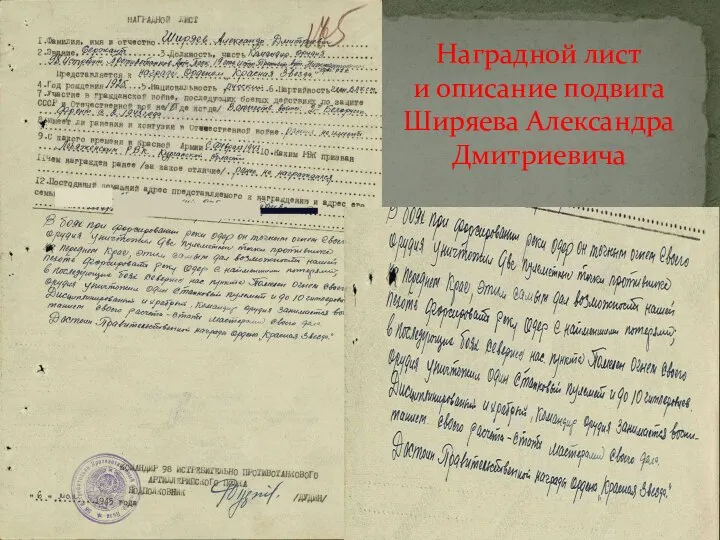 НАГРАДНОЙ ЛИСТ
1.Фамилия, имя и отчество Ширяев Александр Дмитриевич
2.Звание, Сержант 3.Должность, часть Командир орудия
Представляется к Награде Орденом „Красная Звезда"
4.Год рождения 1925 5.Национальность русский 6.Партийность
7.Участие в гражданской войне, последующих боевых действиях по защите
СССР и Отечественной войне
8.Имеет ли ранения и контузии в Отечественной войне
9.С какого времени в Красной Армии 10.Каким РВК призван
РВК, Курганской области
11.Чем награжден ранее /за какое отличие/ ранее не награждался
12.Постоянный домашний адрес представляемого к награждению и адрес его
семьи
В боях при форсировании реки Одер он точным огнем своего
орудия уничтожил две пулеметные точки противника
на переднем крае, этим самым дал возможность нашей
пехоте форсировать реку Одер с наименьшими потерями;
в последующих боях севернее нас. пункта огнем своего
орудия уничтожил один станковый пулемет и до 10 гитлеровцев.
Дисциплинирован и храбрый, командир орудия занимается воспи-
танием своего расчета - стать мастерами своего дела.
Достоин Правительственной награды Ордена „Красная Звезда"
КОМАНДИР 98 ИСТРЕБИТЕЛЬНО ПРОТИВОТАНКОВОГО
АРТИЛЛЕРИЙСКОГО ПОЛКА
ПОДПОЛКОВНИК /ДУДИН/
" 6 " мая 1945 года
Наградной лист
и описание подвига
Ширяева Александра
Дмитриевича
В боях при форсировании реки Одер он точным огнем своего
орудия уничтожил две пулеметные точки противника
на переднем крае, этим самым дал возможность нашей
пехоте форсировать реку Одер с наименьшими потерями;
в последующих боях севернее нас. пункта огнем своего
орудия уничтожил один станковый пулемет и до 10 гитлеровцев.
Дисциплинирован и храбрый, командир орудия занимается воспи-
танием своего расчета - стать мастерами своего дела.
Достоин Правительственной награды Ордена „Красная Звезда"